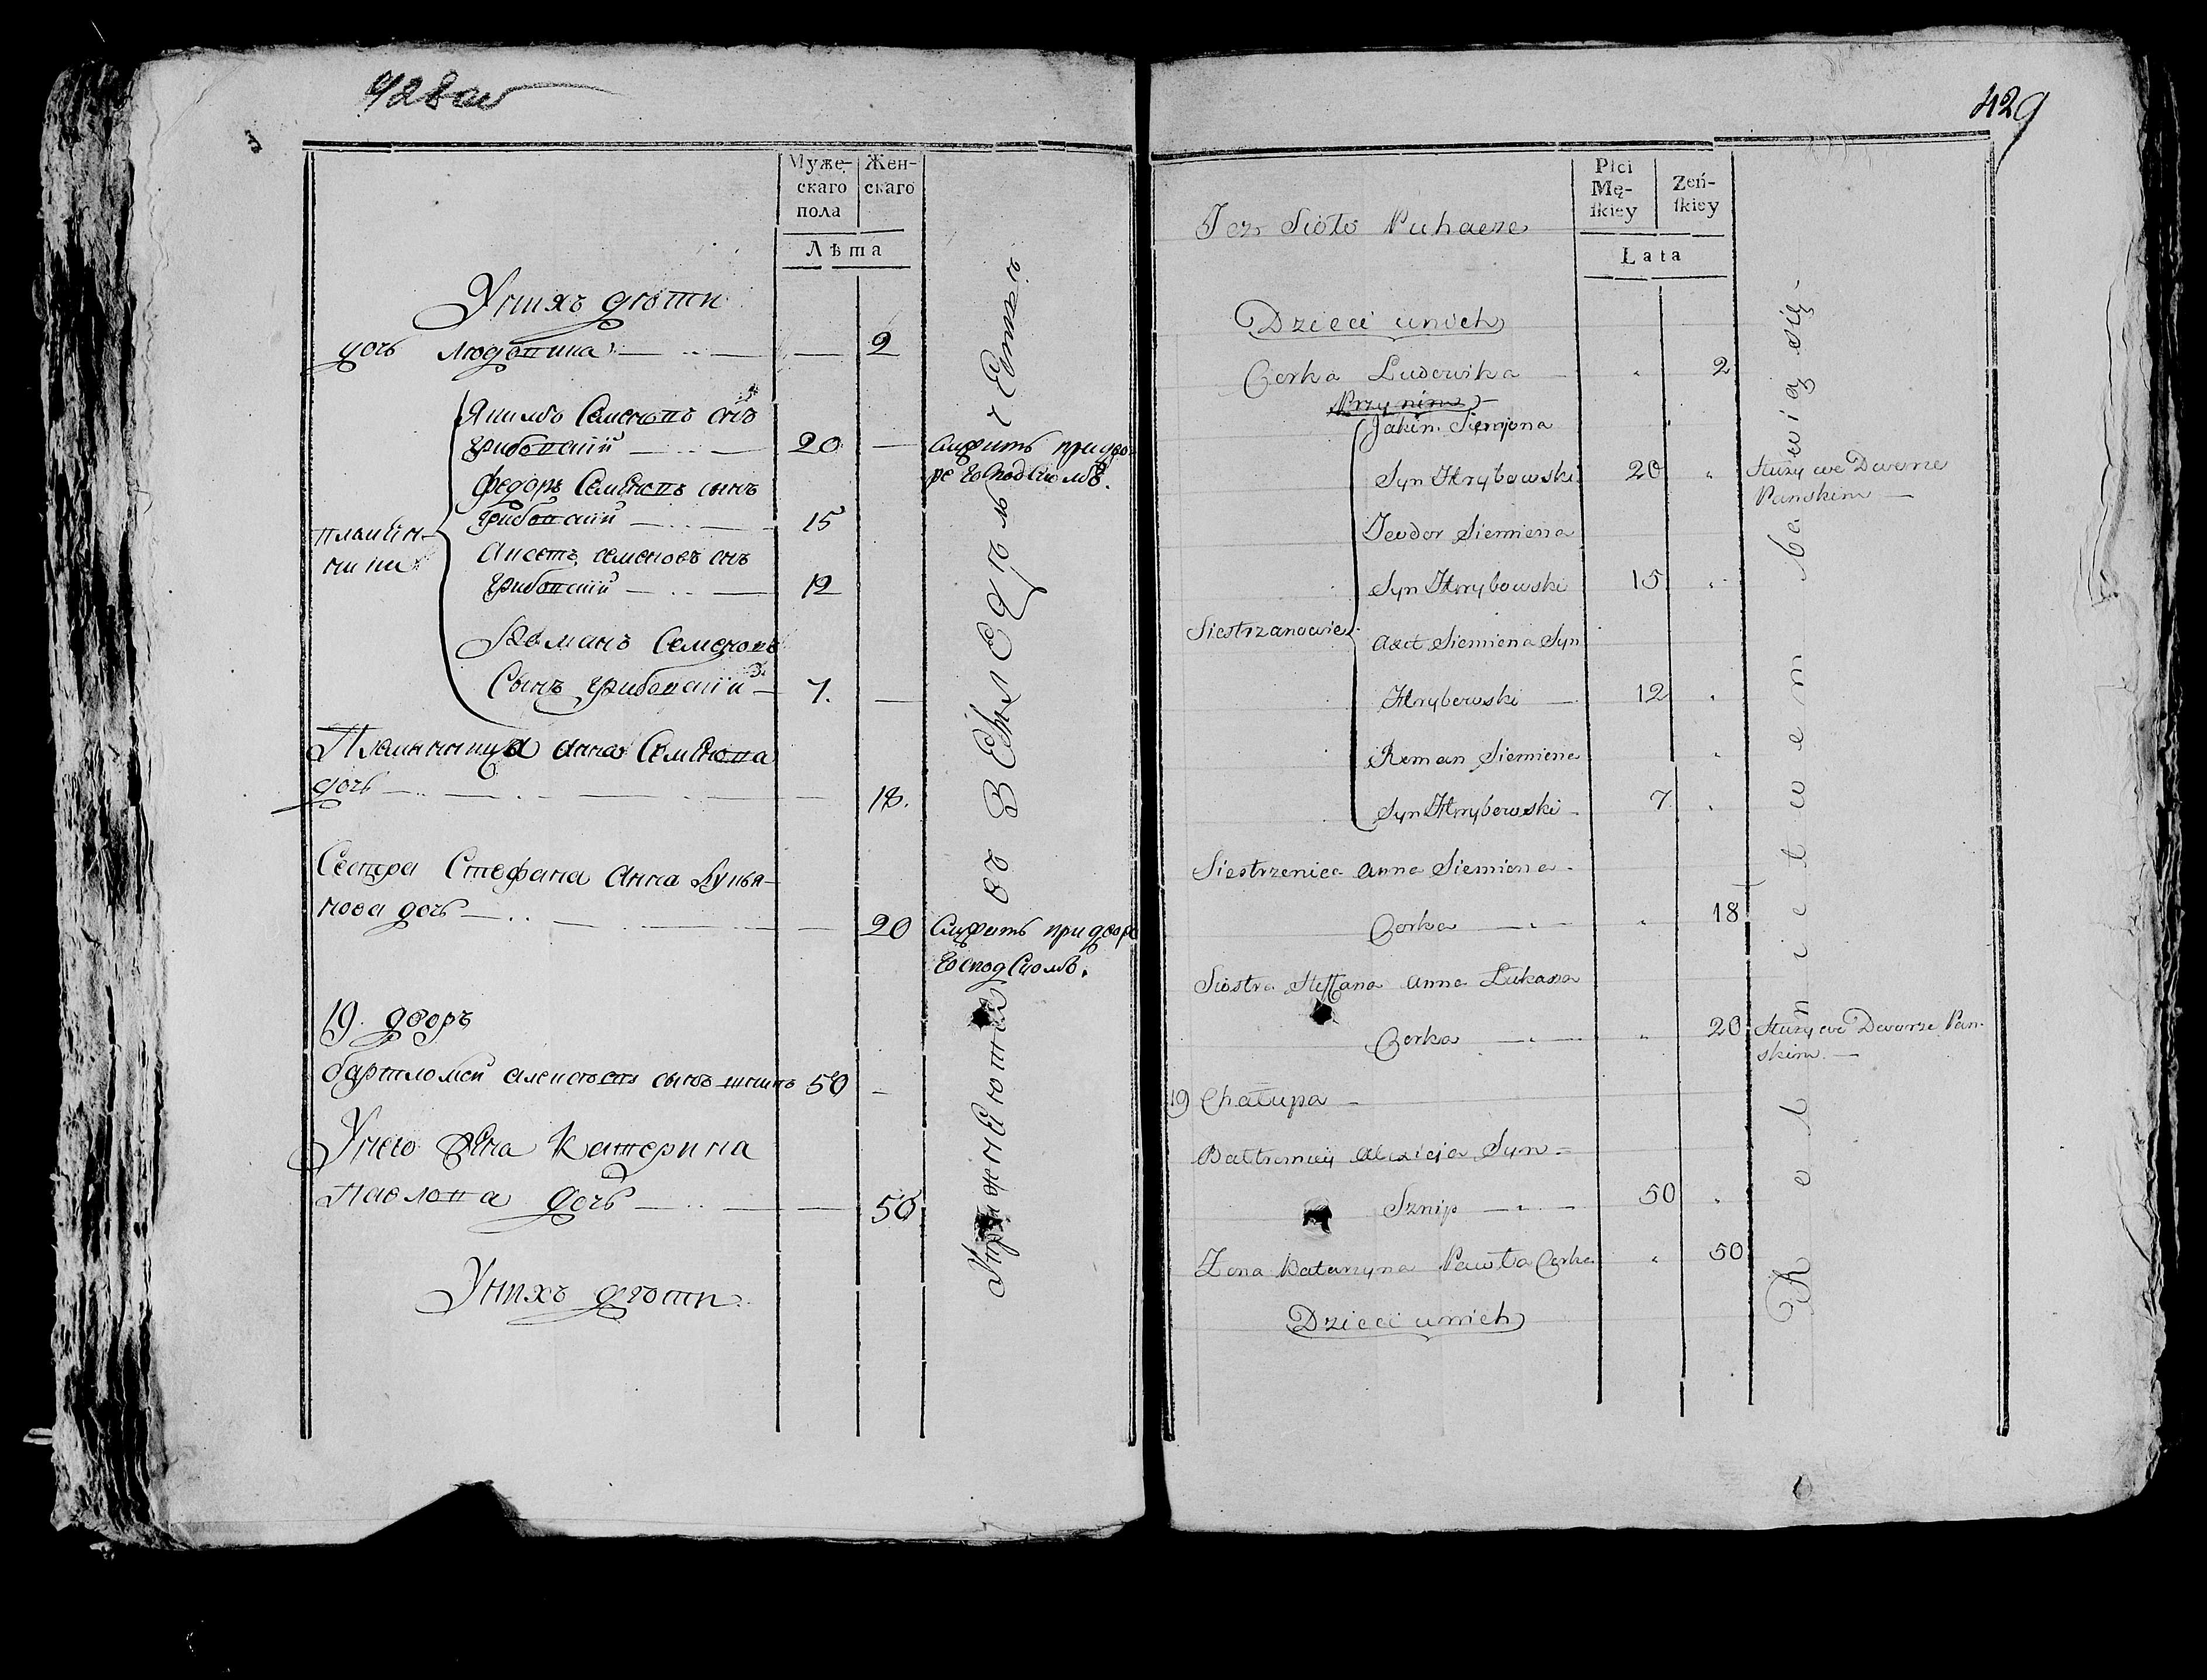 428 об
Муже-
скаго
пола
Жен-
скаго
Лѣта
Унихъ дѣти
дочь Людовика
2
Якимъ Семеновъ сынъ
Грибовскій 20 — Служитъ при дво-
ре Господскомъ.
Федоръ Семеновъ сынъ
Грибовскій 15
племян-
ники
семеновъ сынъ
Грибовскій 12
Романъ Семеновъ
Сынъ Грибовскій 7. —
Племянница Анна Семенова
дочь 18.
Сестра Стефана Анна Лукья-
нова дочь 20 Служитъ при дворе
Господскомъ.
19. дворъ
бартломей алексѣевъ сынъ шнипъ 50 -
Унего жена Катерина
Павлова дочь 50
Унихъ дѣти
Упражняются въ земледелии
429
Płci
Mę-
skiey
Żeń-
skiey
Lata
Też Sioło Puhacze
Dzieci unich
Corka Ludowika 2
Przy nim
Jakim Siemjona
Syn Hrybowski 20 Służy we Dworze
Panskim —
Teodor Siemiena
Syn Hrybowski 15
Siestrzanowie
Axet Siemiena Syn
Hrybowski — 12
Roman Siemiena
Syn Hrybowski - 7
Siestrzenica Anna Siemiona -
Corka 18
Siostra Steffana Anna Łukasza
Corka 20 Służy we Dworze Pan-
skim. —
19 Chałupa —
Bałtromiey Alexieja Syn -
Sznip 50
Żona Katarzyna Pawła Corka 50
Dzieci unich
Rolnictwem bawią się -